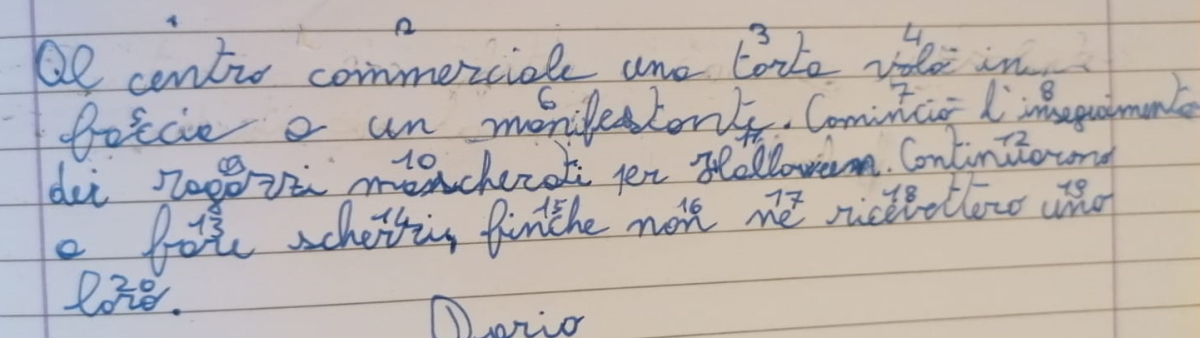 1 2 3 4
Al centro commerciale una torta volò in
5 6 7 8
faccia a un manifestante. Cominciò l'inseguimento
9 10 11 12
dei ragazzi mascherati per Halloween. Continuarono
13 14 15 16 17 18 19
a fare scherzi, finche non ne ricevettero uno
20
loro.
Dario